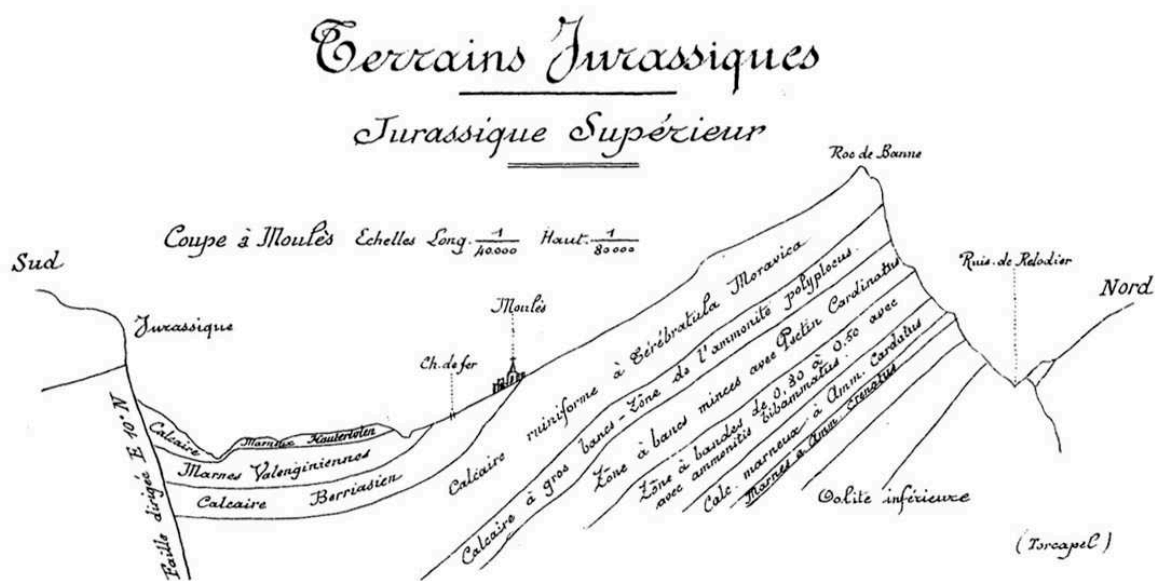 Terrains Jurassiques
Jurassique Supérieur
Roc de Banne
Coupe à Moulès Echelles Long. 1/40.000 Haut. 1/80000
Sud
Ruis. de Relodier
Nord
Jurassique
Moulès
Ch. de fer
Calcaire
Marneux Hauterivien
Marnes Valenginiennes
Calcaire Berriasien
Faille dirigée E 10° N
Calcaire ruiniforme à Térébratula Moravica
Calcaire à gros bancs - Zône de l'ammonité polyplocus.
Zône à bancs minces avec Psctin Cardinatus
Zône à bandes de 0,30 à 0.50 avec
avec ammonitis bibammatus.
Calc. marneux à Amm. Cardatus
Marnes à Amm. crenatus
Oolite inférieure
(Torcapel)